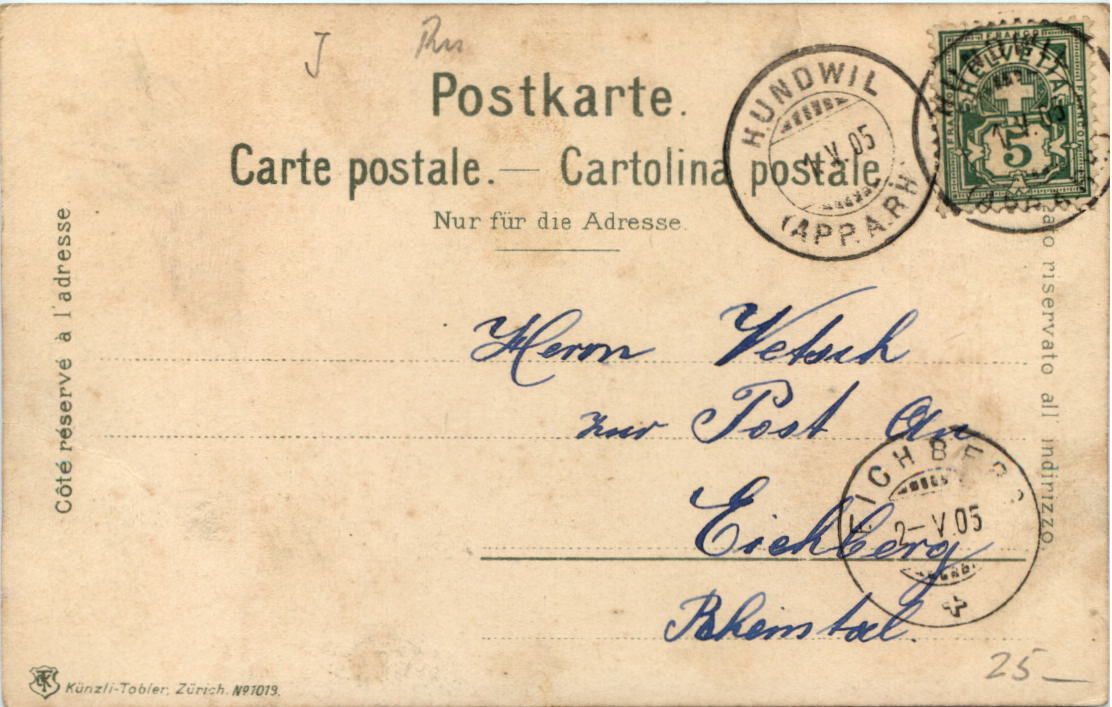 J
Postkarte.
Carte postale.— Cartolina postale
Nur für die Adresse.
Côté réservé à l'adresse
ato riservato all' indirizzo.
HUNDWIL
1.V.05
(APP. A. RH.)
HELVETIA
FRANCO
5
Herrn Vetsch
zur Post An
Eichberg
Rheintal.
EICHBERG
2-V.05
25.—
Künzli-Tobler, Zürich. Nº1019.